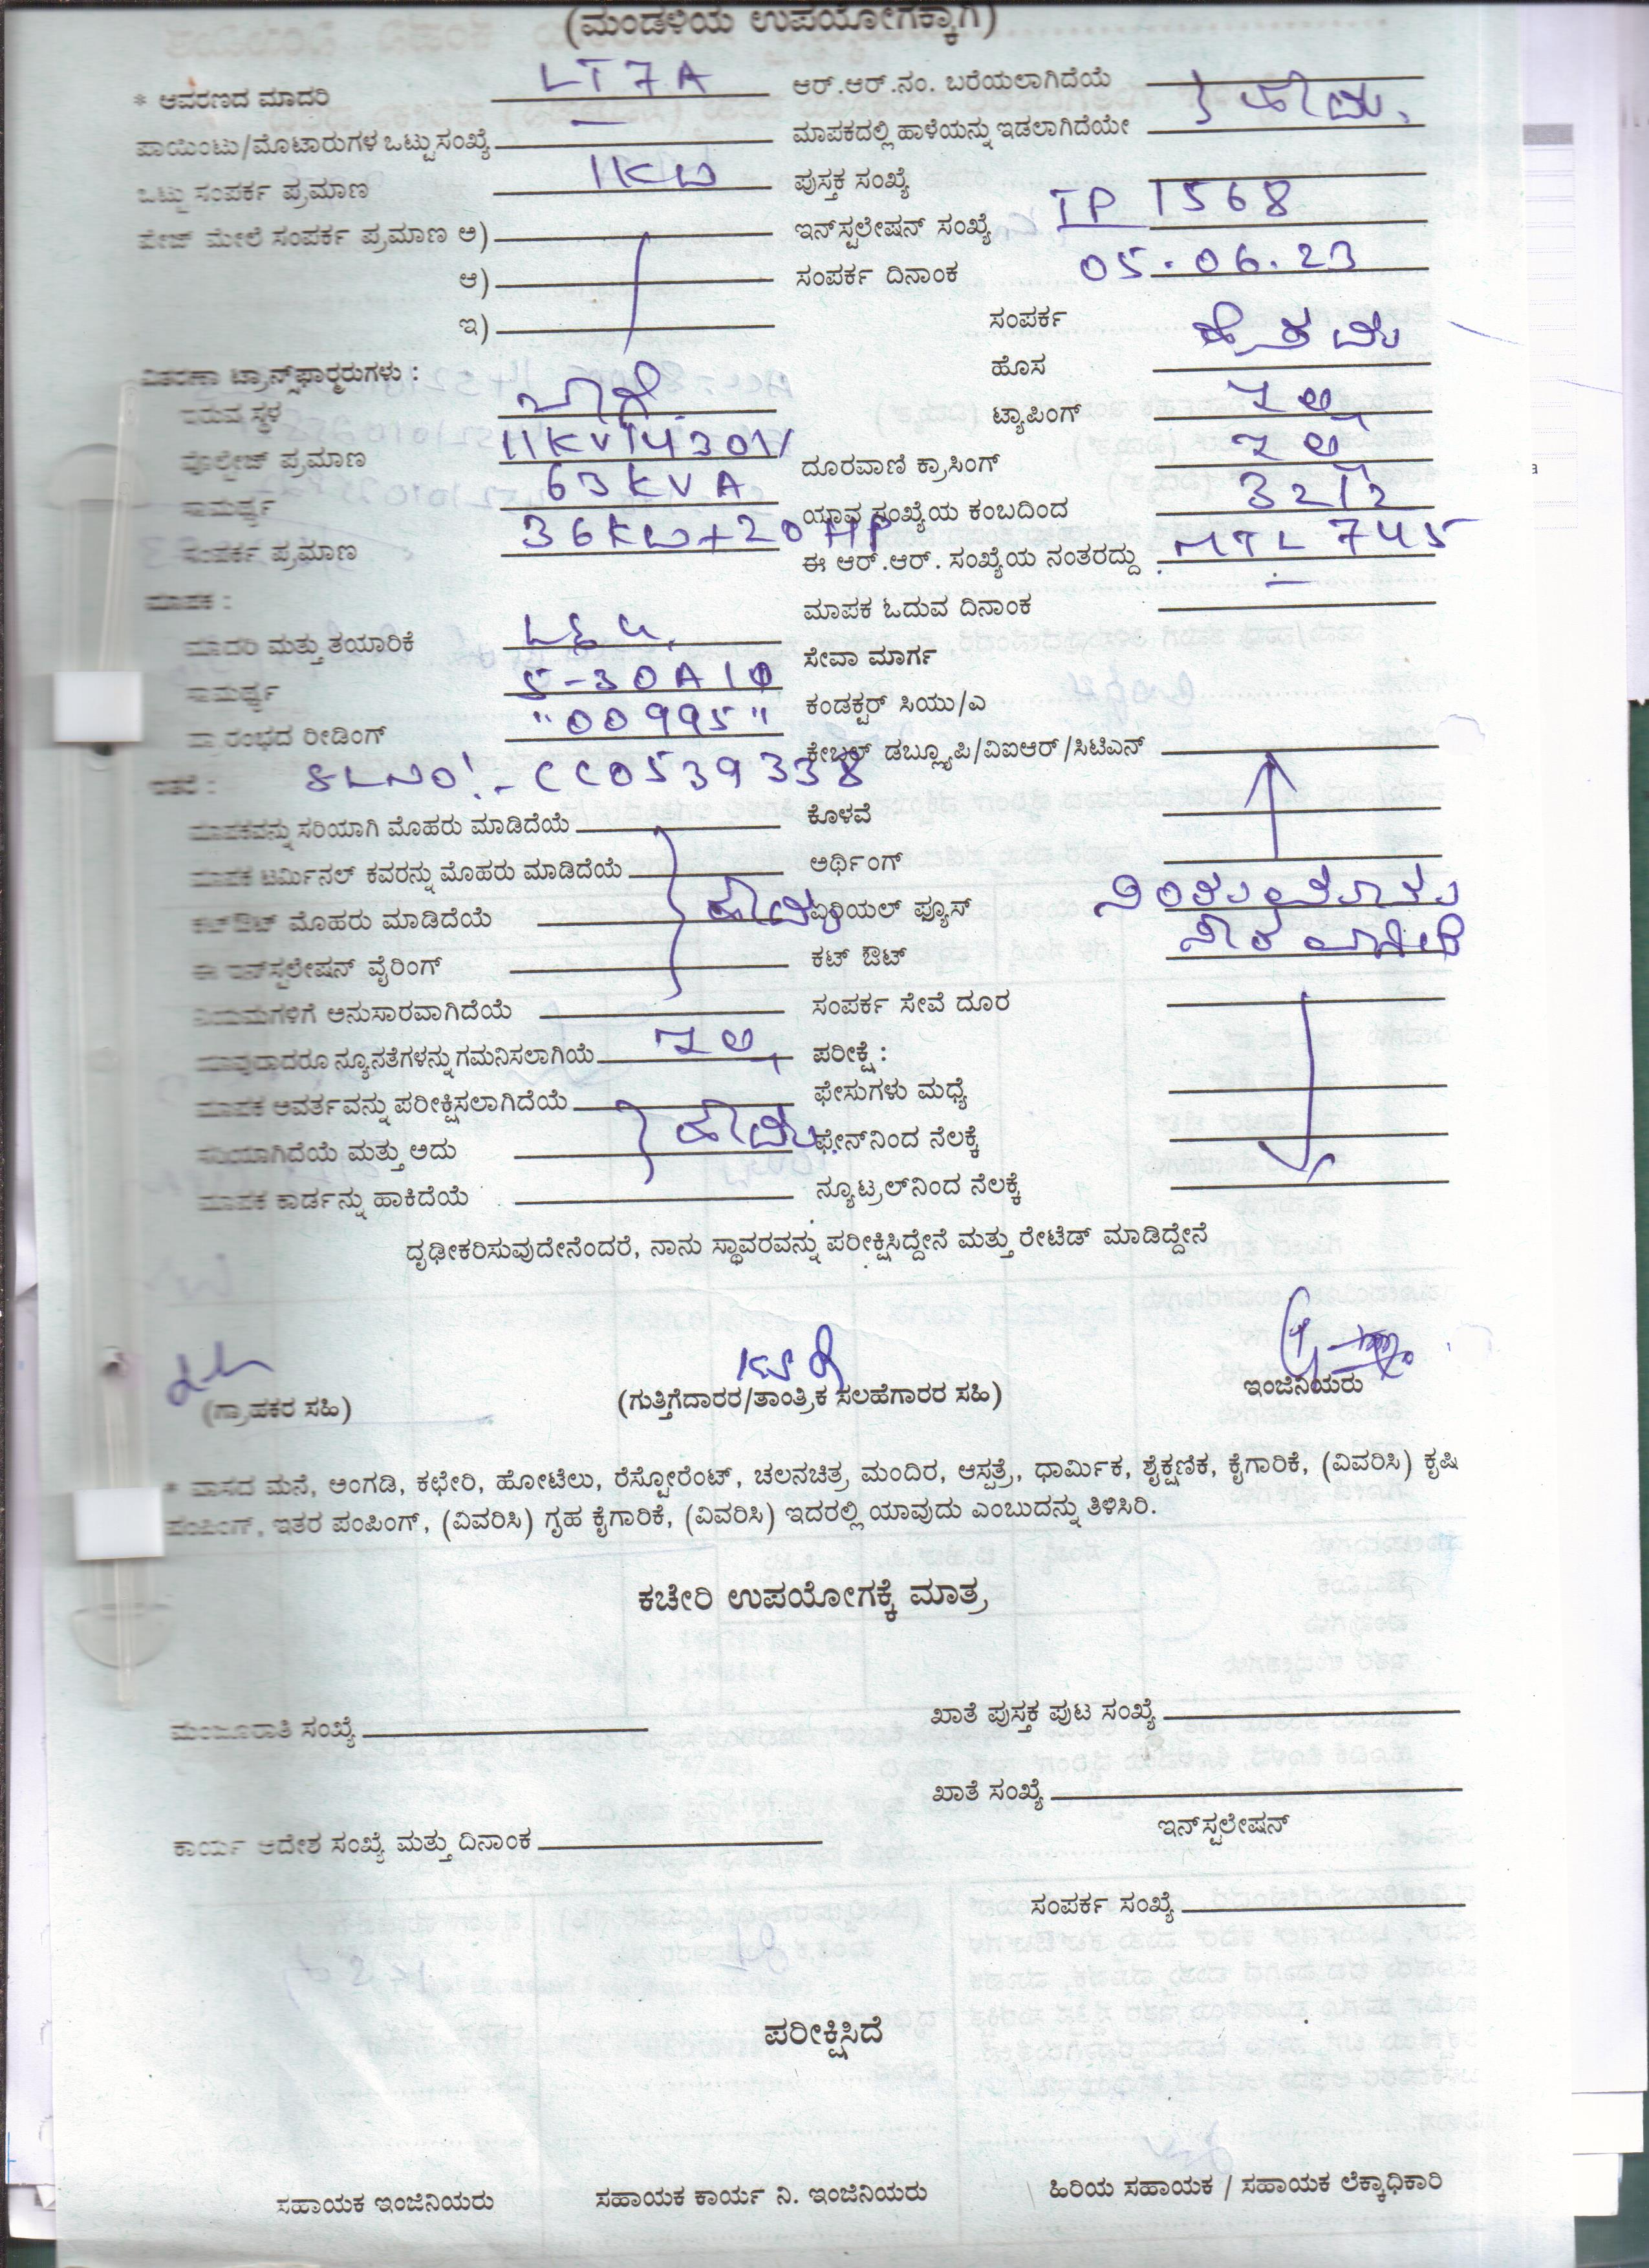 (ಮಂಡಳಿಯ ಉಪಯೋಗಕ್ಕಾಗಿ)
* ಆವರಣದ ಮಾದರಿ LT7A ಆರ್.ಆರ್.ನಂ. ಬರೆಯಲಾಗಿದೆಯೆ
ಪಾಯಿಂಟು/ಮೊಟಾರುಗಳ ಒಟ್ಟುಸಂಖ್ಯೆ — ಮಾಪಕದಲ್ಲಿ ಹಾಳೆಯನ್ನು ಇಡಲಾಗಿದೆಯೇ
ಒಟ್ಟು ಸಂಪರ್ಕ ಪ್ರಮಾಣ 1KW ಪುಸ್ತಕ ಸಂಖ್ಯೆ
ಪೇಜ್ ಮೇಲೆ ಸಂಪರ್ಕ ಪ್ರಮಾಣ ಅ) ಇನ್‌ಸ್ಟಲೇಷನ್ ಸಂಖ್ಯೆ TP 1568
ಆ) ಸಂಪರ್ಕ ದಿನಾಂಕ 05.06.23
ಇ) ಸಂಪರ್ಕ
ವಿತರಣಾ ಟ್ರಾನ್ಸ್‌ಫಾರ್‍ಮರುಗಳು : ಹೊಸ
ಇರುವ ಸ್ಥಳ ಟ್ಯಾಪಿಂಗ್ ಇಲ್ಲ
ವೊಲ್ಟೇಜ್ ಪ್ರಮಾಣ 11KV/430V ದೂರವಾಣಿ ಕ್ರಾಸಿಂಗ್ ಇಲ್ಲ
ಸಾಮರ್ಥ್ಯ 63KVA ಯಾವ ಸಂಖ್ಯೆಯ ಕಂಬದಿಂದ
ಸಂಪರ್ಕ ಪ್ರಮಾಣ 36KW+20HP ಈ ಆರ್.ಆರ್. ಸಂಖ್ಯೆಯ ನಂತರದ್ದು MTL 745
ಮಾಪಕ : ಮಾಪಕ ಓದುವ ದಿನಾಂಕ —
ಮಾದರಿ ಮತ್ತು ತಯಾರಿಕೆ ಸೇವಾ ಮಾರ್ಗ
ಸಾಮರ್ಥ್ಯ 5-30A 1Φ ಕಂಡಕ್ಟರ್ ಸಿಯು/ಎ
ಪ್ರಾರಂಭದ ರೀಡಿಂಗ್ "00995" ಕೇಬಲ್ ಡಬ್ಲ್ಯೂಪಿ/ವಿಐಆರ್/ಸಿಟಿಎನ್
ಇತರೆ : SL NO:- CC0539338 ಕೊಳವೆ
ಮಾಪಕವನ್ನು ಸರಿಯಾಗಿ ಮೊಹರು ಮಾಡಿದೆಯೆ
ಮಾಪಕ ಟರ್ಮಿನಲ್ ಕವರನ್ನು ಮೊಹರು ಮಾಡಿದೆಯೆ ಅರ್ಥಿಂಗ್
ಕಟ್‌ಔಟ್ ಮೊಹರು ಮಾಡಿದೆಯೆ ಹೌದು ಏರಿಯಲ್ ಫ್ಯೂಸ್
ಈ ಇನ್‌ಸ್ಟಲೇಷನ್ ವೈರಿಂಗ್ ಕಟ್ ಔಟ್
ನಿಯಮಗಳಿಗೆ ಅನುಸಾರವಾಗಿದೆಯೆ ಸಂಪರ್ಕ ಸೇವೆ ದೂರ
ಯಾವುದಾದರೂ ನ್ಯೂನತೆಗಳನ್ನು ಗಮನಿಸಲಾಗಿಯೆ ಇಲ್ಲ ಪರೀಕ್ಷೆ :
ಮಾಪಕ ಆವರ್ತವನ್ನು ಪರೀಕ್ಷಿಸಲಾಗಿದೆಯೆ ಫೇಸುಗಳು ಮಧ್ಯೆ
ಸರಿಯಾಗಿದೆಯೆ ಮತ್ತು ಅದು ಹೌದು ಫೇನ್‌ನಿಂದ ನೆಲಕ್ಕೆ
ಮಾಪಕ ಕಾರ್ಡನ್ನು ಹಾಕಿದೆಯೆ ನ್ಯೂಟ್ರಲ್‌ನಿಂದ ನೆಲಕ್ಕೆ
ದೃಢೀಕರಿಸುವುದೇನೆಂದರೆ, ನಾನು ಸ್ಥಾವರವನ್ನು ಪರೀಕ್ಷಿಸಿದ್ದೇನೆ ಮತ್ತು ರೇಟೆಡ್ ಮಾಡಿದ್ದೇನೆ
(ಗ್ರಾಹಕರ ಸಹಿ) (ಗುತ್ತಿಗೆದಾರರ/ತಾಂತ್ರಿಕ ಸಲಹೆಗಾರರ ಸಹಿ) ಇಂಜಿನಿಯರು
* ವಾಸದ ಮನೆ, ಅಂಗಡಿ, ಕಛೇರಿ, ಹೋಟೆಲು, ರೆಸ್ಟೋರೆಂಟ್, ಚಲನಚಿತ್ರ ಮಂದಿರ, ಆಸ್ಪತ್ರೆ, ಧಾರ್ಮಿಕ, ಶೈಕ್ಷಣಿಕ, ಕೈಗಾರಿಕೆ, (ವಿವರಿಸಿ) ಕೃಷಿ
ಪಂಪಿಂಗ್, ಇತರ ಪಂಪಿಂಗ್, (ವಿವರಿಸಿ) ಗೃಹ ಕೈಗಾರಿಕೆ, (ವಿವರಿಸಿ) ಇದರಲ್ಲಿ ಯಾವುದು ಎಂಬುದನ್ನು ತಿಳಿಸಿರಿ.
ಕಚೇರಿ ಉಪಯೋಗಕ್ಕೆ ಮಾತ್ರ
ಮಂಜೂರಾತಿ ಸಂಖ್ಯೆ ಖಾತೆ ಪುಸ್ತಕ ಪುಟ ಸಂಖ್ಯೆ
ಖಾತೆ ಸಂಖ್ಯೆ
ಕಾರ್ಯ ಆದೇಶ ಸಂಖ್ಯೆ ಮತ್ತು ದಿನಾಂಕ ಇನ್‌ಸ್ಟಲೇಷನ್
ಸಂಪರ್ಕ ಸಂಖ್ಯೆ
ಪರೀಕ್ಷಿಸಿದೆ
ಸಹಾಯಕ ಇಂಜಿನಿಯರು ಸಹಾಯಕ ಕಾರ್ಯ ನಿ. ಇಂಜಿನಿಯರು ಹಿರಿಯ ಸಹಾಯಕ / ಸಹಾಯಕ ಲೆಕ್ಕಾಧಿಕಾರಿ